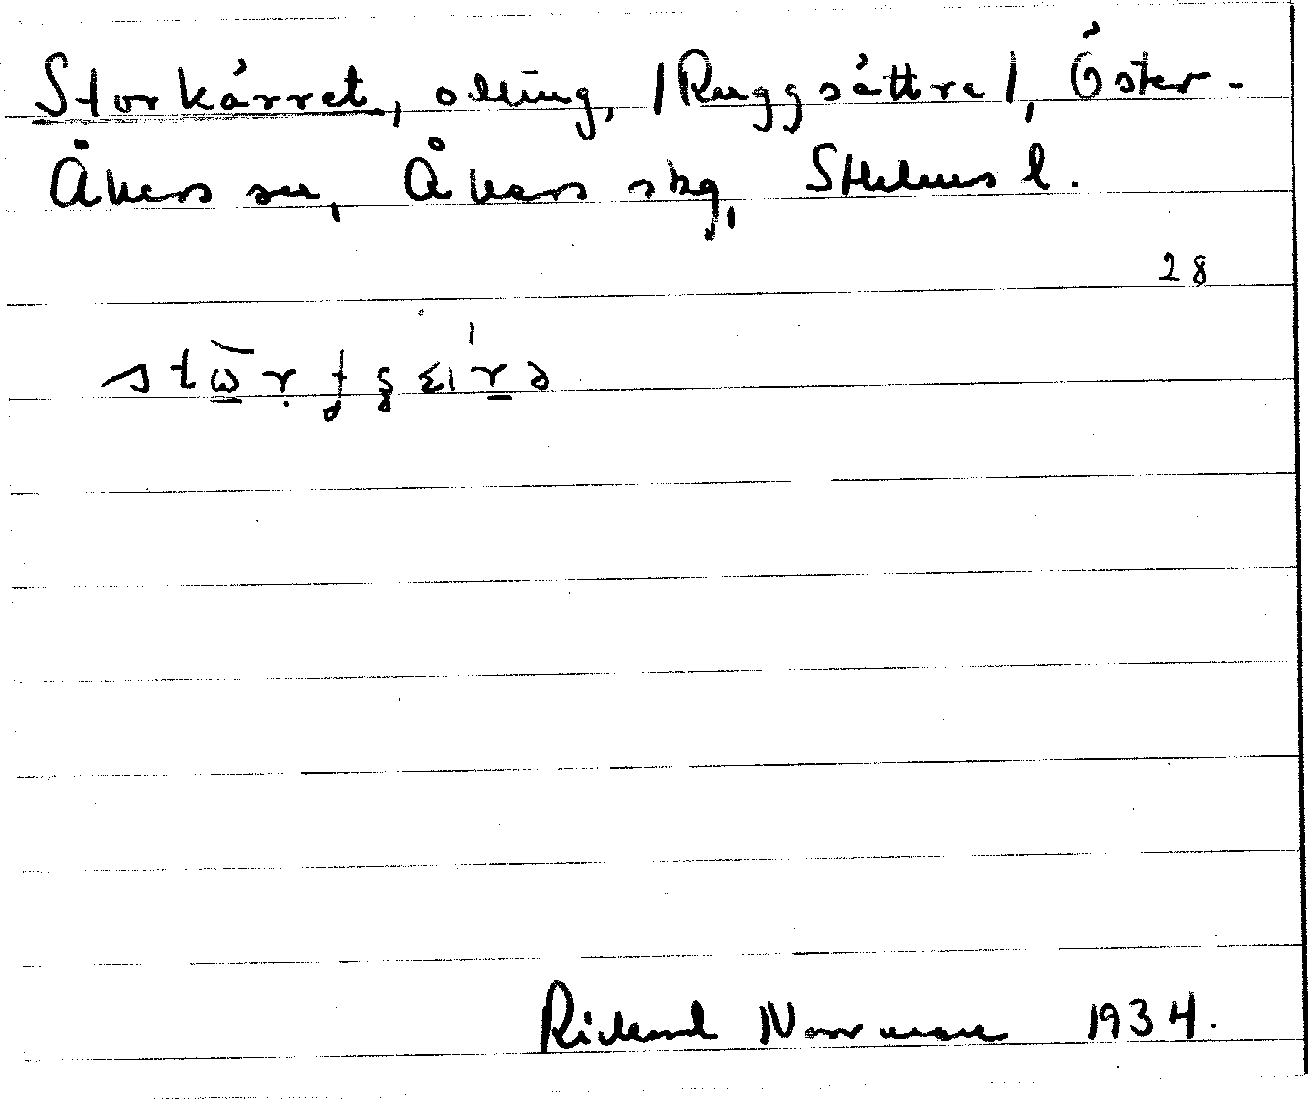 Storkärret, odling, /Ruggsättra/, Öster-
Åkers sn, Åkers skg, Sthlms l.
28
Rickard Norrman 1934.